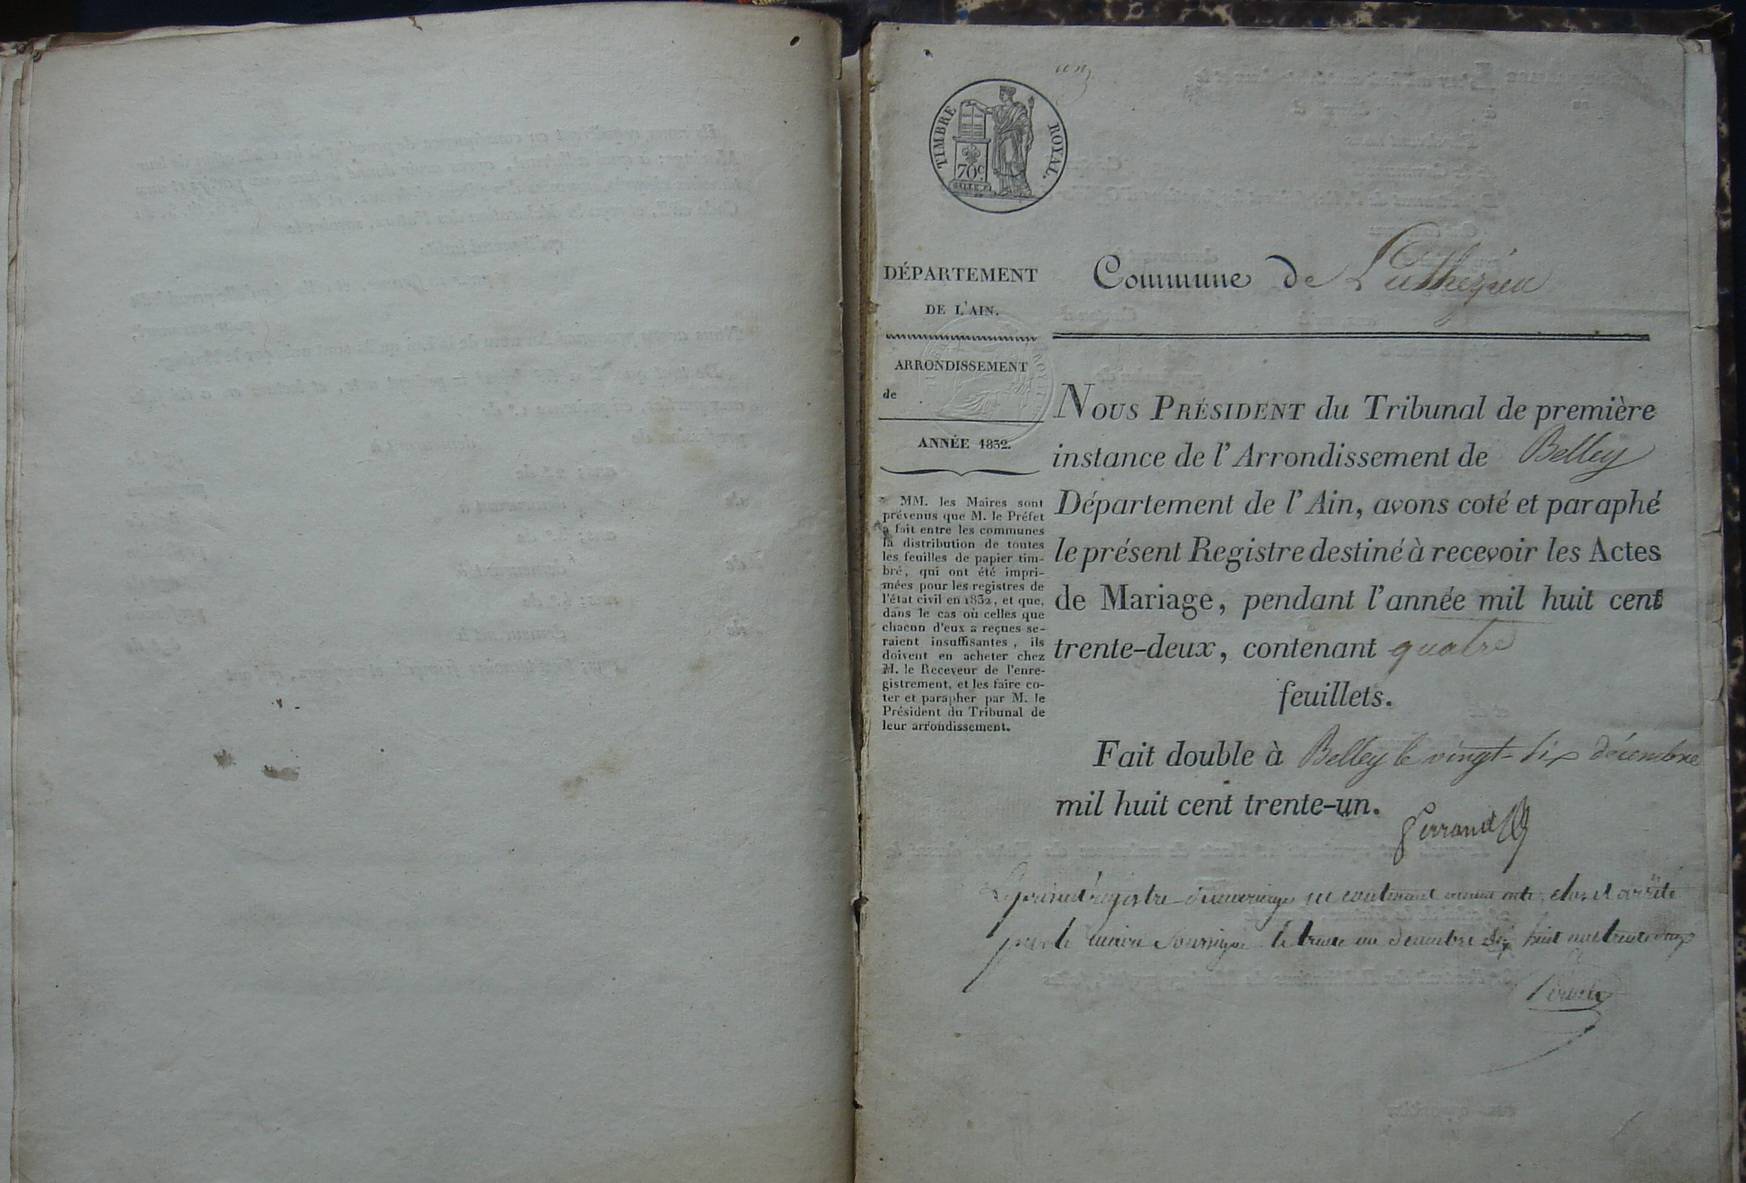 TIMBRE ROYAL.
70c
DÉPARTEMENT
DE L'AIN.
ARRONDISSEMENT
de
ANNÉE 1832.
MM. les Maires sont
prévenus que M. le Préfet
a fait entre les communes
la distribution de toutes
les feuilles de papier tim-
bré, qui ont été impri-
mées pour les registres de
l'état civil en 1832, et que,
dans le cas où celles que
chacun d'eux a reçues se-
raient insuffisantes, ils
doivent en acheter chez
M. le Receveur de l'enre-
gistrement, et les faire co-
ter et parapher par M. le
Président du Tribunal de
leur arrondissement.
Commune de Luthézieu
NOUS PRÉSIDENT du Tribunal de première
instance de l'Arrondissement de Belley
Département de l'Ain, avons coté et paraphé
le présent Registre destiné à recevoir les Actes
de Mariage, pendant l'année mil huit cent
trente-deux, contenant quatre
feuillets.
Fait double à Belley le vingt-six décembre
mil huit cent trente-un.
Le présent registre de mariage ne contenant aucun acte, clos et arrêté
par le maire soussigné le trente un décembre huit cent trente deux